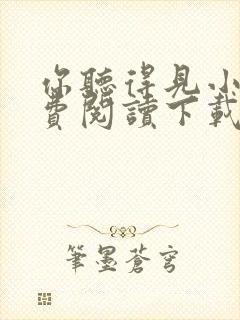 你聽得見小
費閱讀下載
筆墨蒼穹